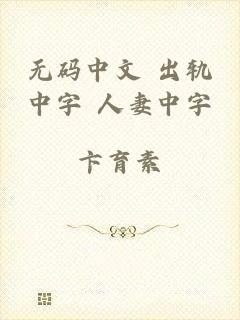 无码中文 出轨
中字 人妻中字
卞育素